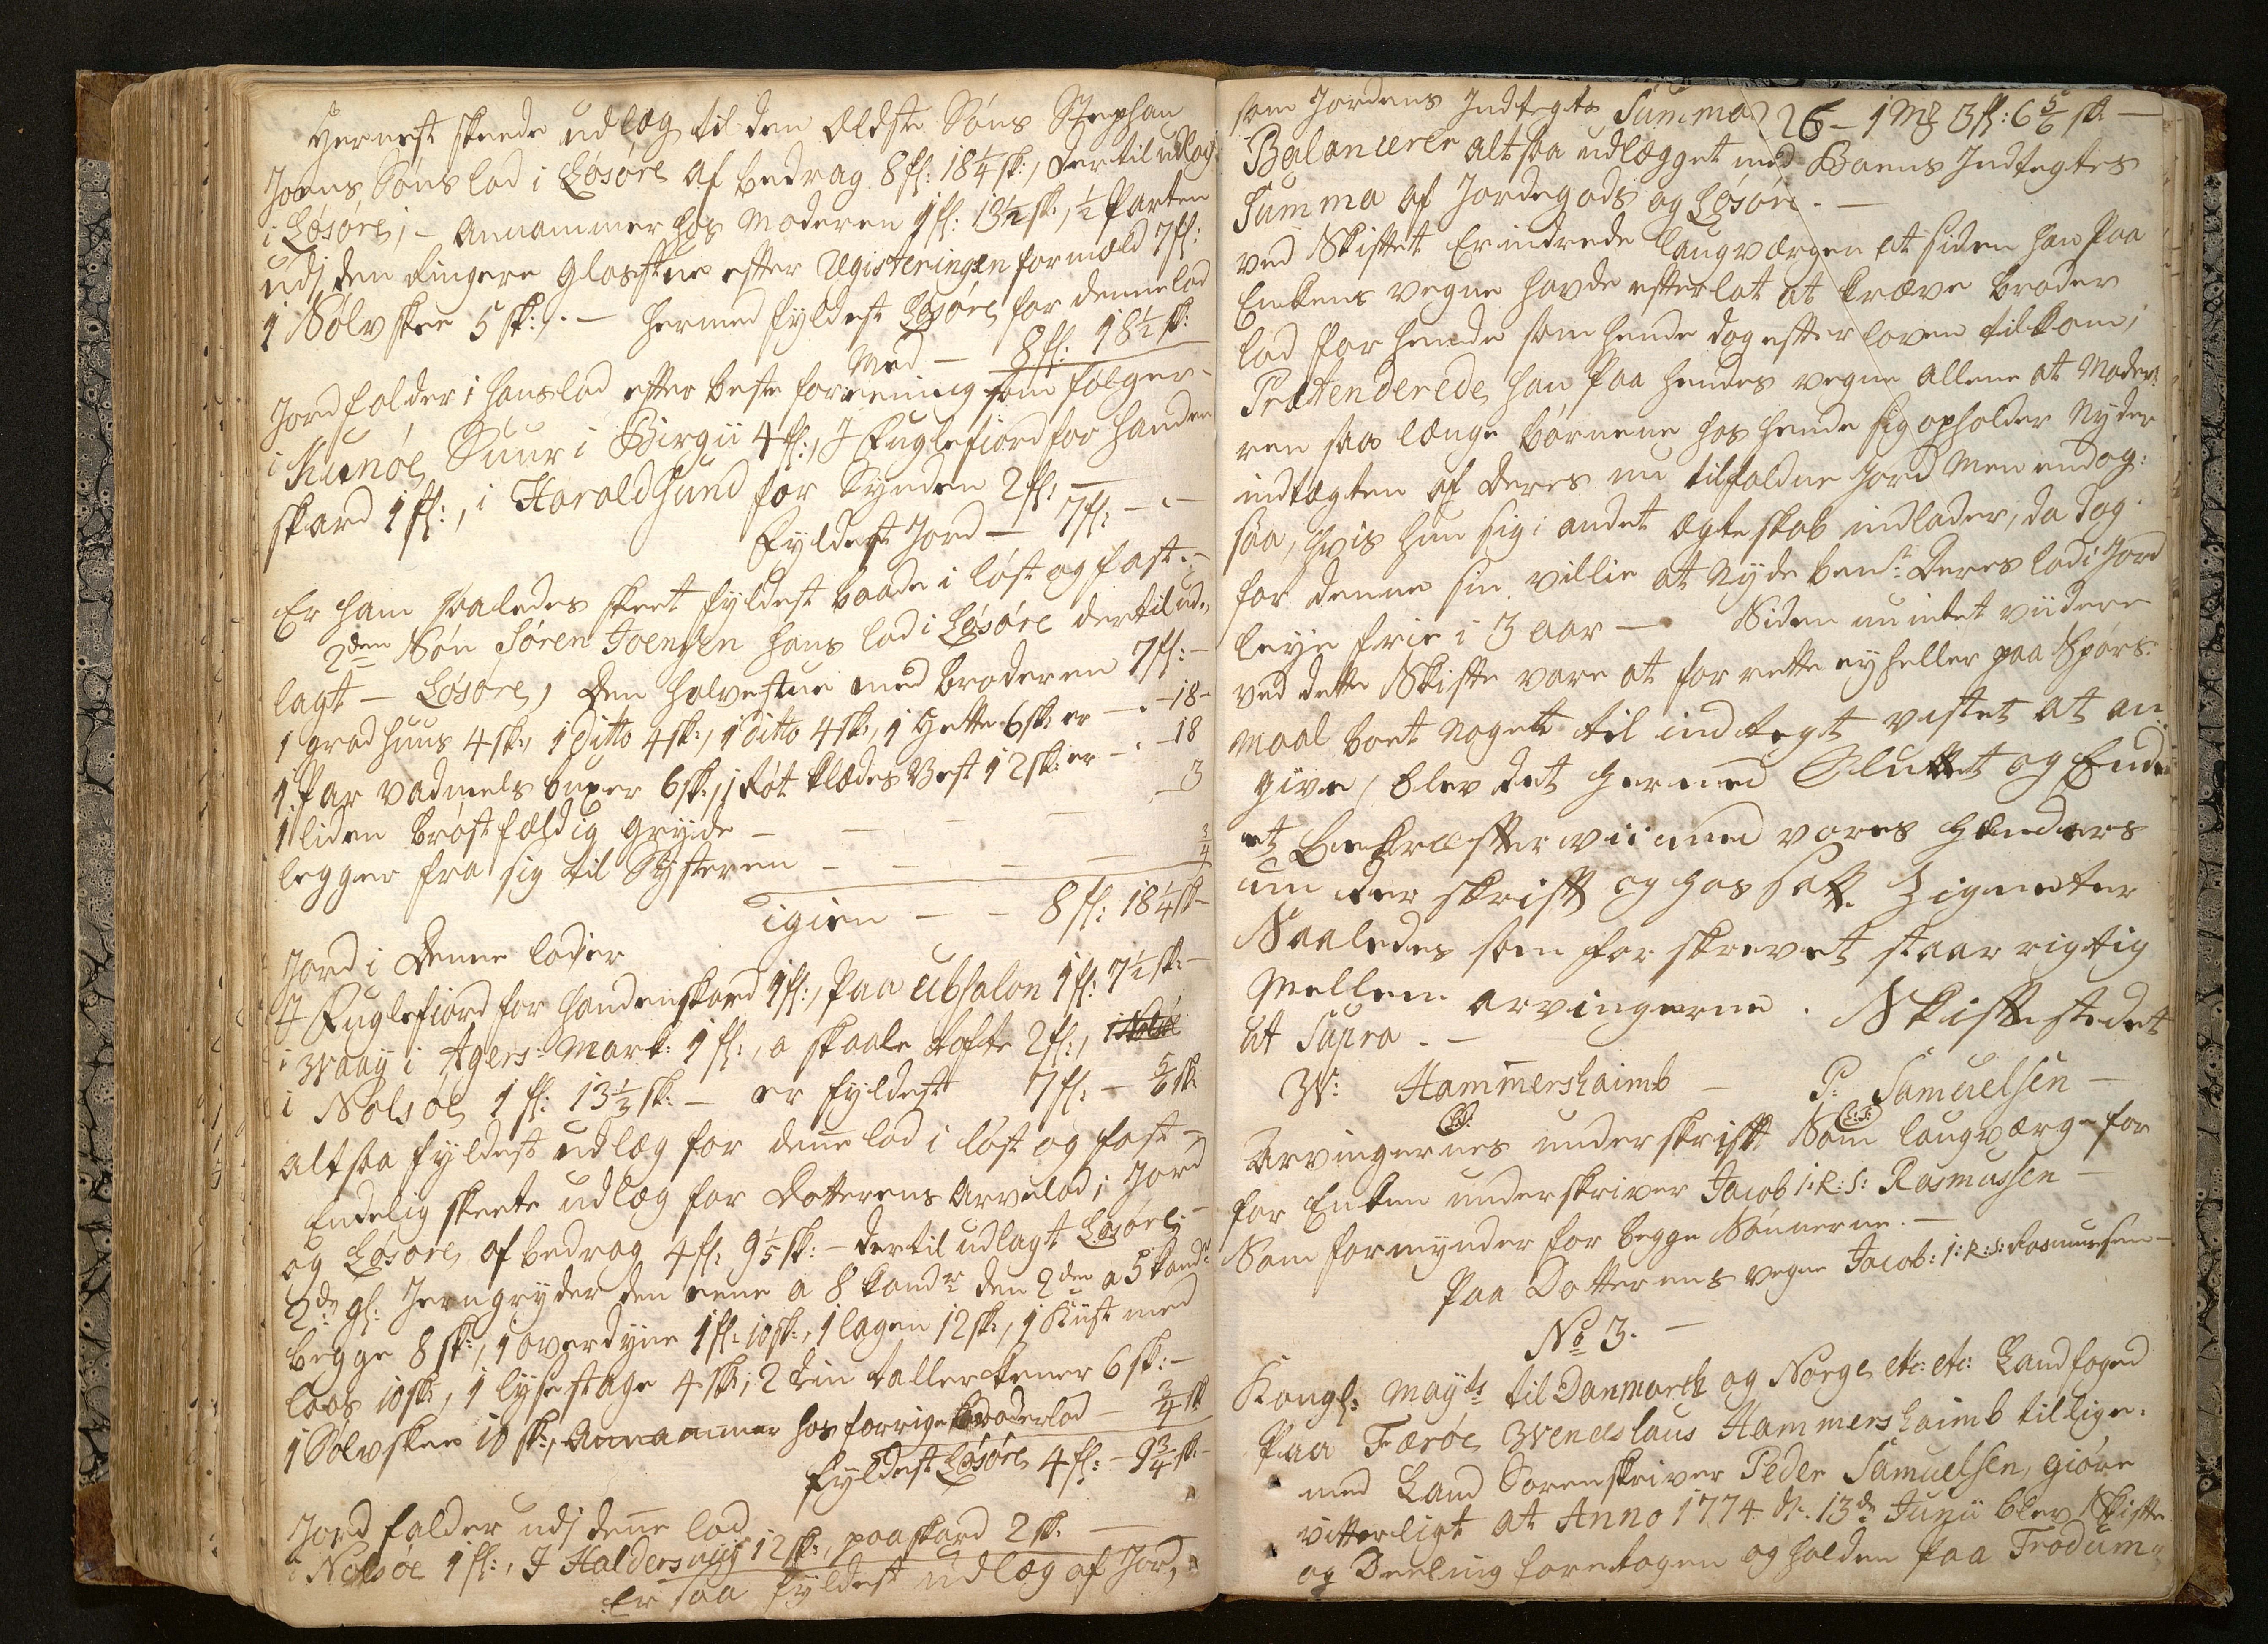 Hernest skeede udlæg til den Eldste Søns Stephan
Joens Søns lod i Løsøre af bedrag 8 fl: 18 1/4 sk:, dertil udlagt
i Løsøre, - Annammer hos Moderen 1 fl: 13 1/2 sk:, 1/2 Parten
udj den Ringere Glasstue efter Registeringen formæld 7 fl:
1 Sølv skee 5 sk:,. - hermed fyldest Løsøre for denne lod
Med - 8 fl: 18 1/2 sk:
Jord falder i hans lod efter beste foreening som følger -
i Kunøe Suur i Birgii 4 fl:, J Fuglefiord for Handen
skard 1 fl:, i Haraldsund for Synden 2 fl: -
Fyldest Jord - 7 fl: - " -
Er ham saaledes skeet fyldest baade i løst og fast. -
2den Søn Søren Joensen hans lod i Løsøre dertil ud,
lagt - Løsøre, Den halvestue med broderen 7 fl: -
1 grad huus 4 sk:, 1 Ditto 4 sk:, 1 Ditto 4 sk:, 1 Hette 6 sk: er - " - 18 -
1 Par vadmels buxer 6 sk:, 1 Røt Klædes Vest 12 sk: er - " - 18
1 liden brøstfældig Gryde - - - - - 3
legger fra sig til Systeren - - - - 3/4
igien - - 8 fl: 18 1/4 sk -
Jord i Denne lod er
J Fuglefiord for Handenskard 1 fl:, Paa Ubsalon 1 fl: 7 1/2 sk: -
i Waay i Agers: Mark: 1 fl:, a skaale tofte 2 fl:, i Nolsøe
i Nolsøe 1 fl: 13 1/3 sk: - er fyldest 7 fl: - 5/6 sk
altsaa fyldest udlæg for dene lod i løst og fast -
Endelig skeete udlæg for Dotterens Arvelod i Jord
og Løsøre af bedrag 4 fl: 9 1/5 sk: - dertil udlagt Løsøre -
2de gl: Jerngryder den eene a 8 kandr den 2den a 5 kandr
begge 8 sk:, 1 overdyne 1 fl: 10 sk:, 1 lagen 12 sk:, 1 Kist med
laas 10 sk:, 1 lysestage 4 sk:, 2 Tin tallerkener 6 sk: -
1 Sølvskee 10 sk:, Annammer hos forrige Broderlod - 3/4 sk
fyldest Løsøre 4 fl: - 9 3/4 sk -
Jord falder udj dene lod
i Nolsøe 1 fl:, J Haldersviig 12 sk:, paaskard 2 sk: -
Er saa fyldest udlæg af Jord,
som Jordens Indtegts Summa 26 - 1 Mk 3 fl: 6 5/6 sk -
Balancerer altsaa udlægget med Boens Indtegtes
Summa af Jordegods og Løsøre. -
ved Skiftet Erindrede Laugværgen at siden han Paa
Enkens vegne havde efterlat at kræve broder
lod for hende som hende dog efter loven tilkom,
Prætenderede han Paa hendes vegne allene at Mode,
ren saa længe børnene hos hende sig opholder Nyder
indtægten af deres nu tilfaldne Jord Men endog:
saa, hvis hun sig i andet ægteskab indlader, da dog
for denne sin villie at Nyde benr Deres lod i Jord
leye frie i 3 aar - Siden nu intet viidere
ved dette Skifte vare at forrette ey heller paa Spørs:
maal boet Noget til indtegt vistet at an
give, blev det hermed Sluttet og Ende
et, Bekræfter vii med vores Hænders
un der skrift og hos satt Zigneter
Saaledes som forskrevet staar rigtig
Mellem arvingerne. Skifte stedet
Ut Supra. -
W: Hammershaimb - P: Samuelsen -
L:S: L:S:
Arvingernes underskrift Som laugværge for
for Enken underskriver Jacob I: R: S: Rasmussen -
Som formynder for begge Sønnerne. -
Paa Dotterens vegne Jacob: I: R: S: Rasmussen -
No 3. -
Kongl: Mayts til Danmark og Norge etc: etc: Landfoged
Paa Færøe Wenceslaus Hammershaimb tillige:
med Land Sorenskriver Peder Samuelsen, giøre
vitterligt at Anno 1774 d: 13de Junii blev Skifte
og Deeling foretagen og holden Paa Trodum=